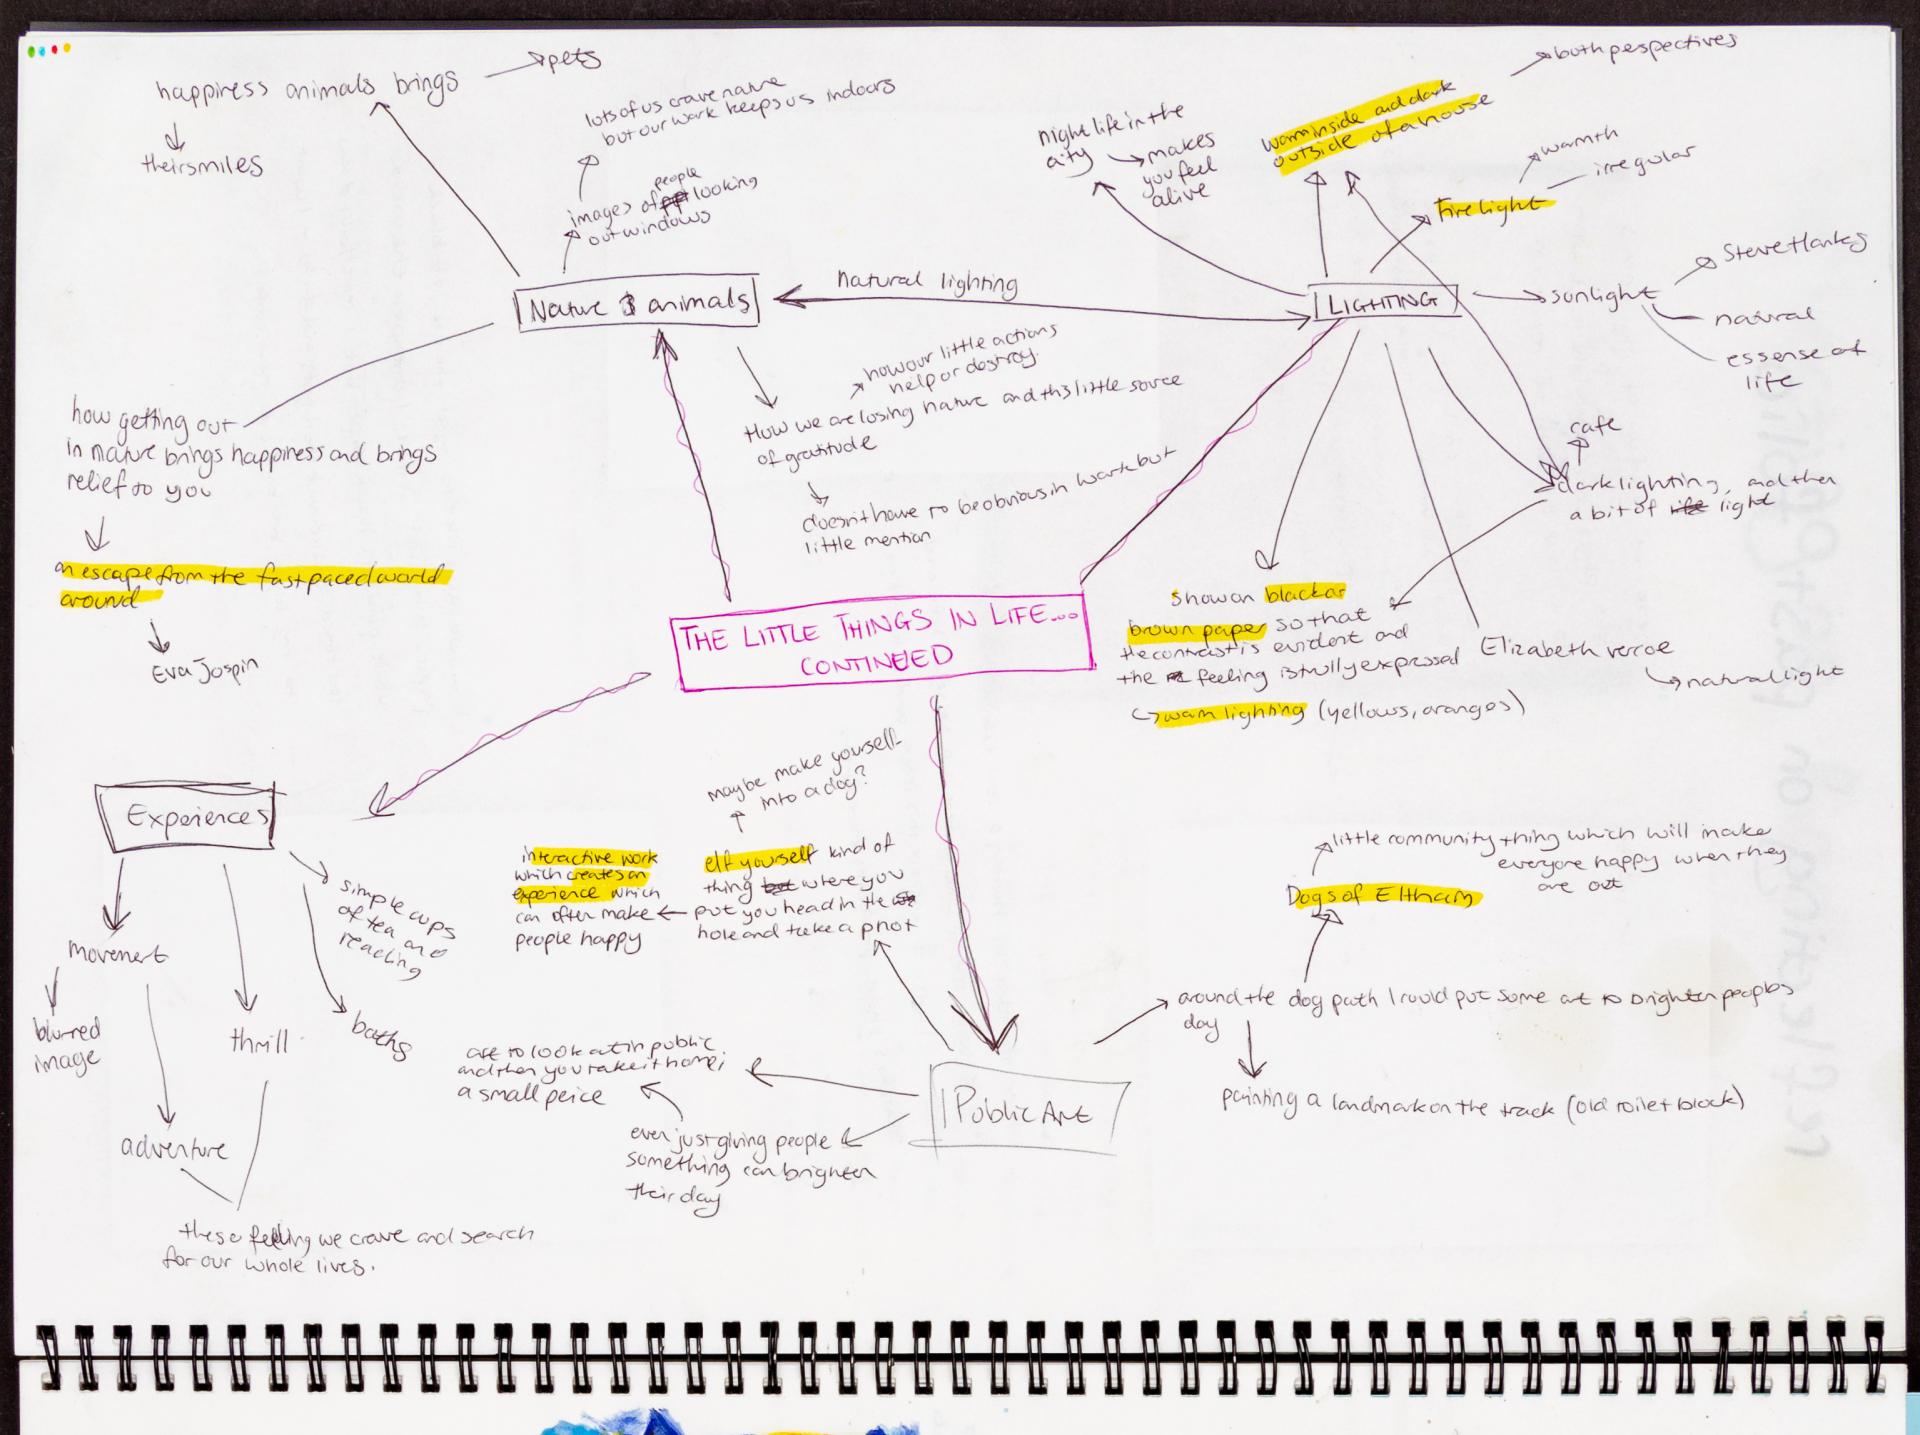 happiness animals brings
pets
their smiles
lots of us crave nature
but our work keeps us indoors
people
images of looking
out windows
Nature & animals
natural lighting
how getting out
in nature brings happiness and brings
relief to you
an escape from the fast paced world
around
Eva Jospin
how our little actions
help or destroy.
How we are losing nature and this little source
of gratitude
doesn't have to be obvious in work but
little mention
night life in the
city
makes
you feel
alive
warm inside and dark
outside of a house
both perspectives
Fire light
warmth
irregular
LIGHTING
sunlight
Steve Hanks
natural
essense of
life
cafe
dark lighting, and then
a bit of light
Show on black or
brown paper so that
the contrast is evident and
the feeling is fully expressed
warm lighting (yellows, oranges)
Elizabeth
natural light
THE LITTLE THINGS IN LIFE...
CONTINUED
Experiences
movement
blurred
image
adventure
thrill
simple cups
of tea and
reading
baths
these feeling we crave and search
for our whole lives.
maybe make yourself
into a dog?
elf yourself kind of
thing where you
put you head in the
hole and take a phot
interactive work
which creates an
experience which
can often make
people happy
Public Art
art to look at in public
and then you take it home;
a small peice
even just giving people
something can brighten
their day
little community thing which will make
everyone happy when they
are out
Dogs of Eltham
around the dog path I could put some art to brighten peoples
day
painting a landmark on the track (old toilet block)